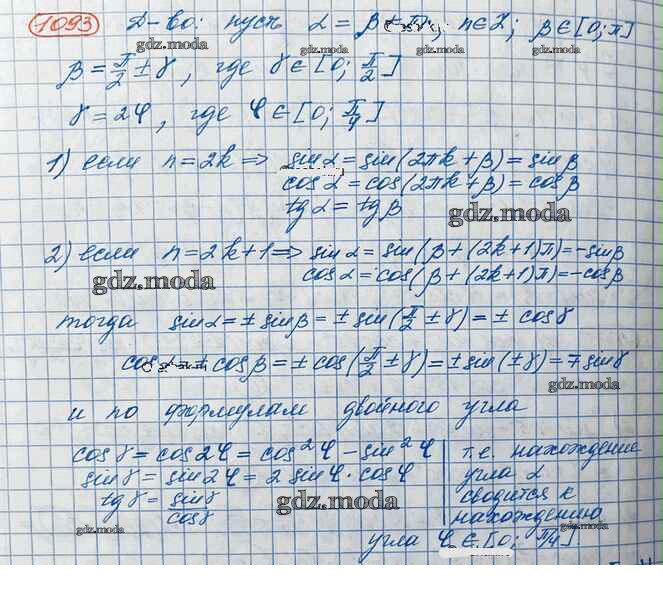 1093 Д-во: пусть α = β + πn; n∈Z; β∈[0;π]
gdz.moda
β = π/2 ± γ, где γ∈[0; π/2]
gdz.moda gdz.moda
γ = 2φ, где φ∈[0; π/4]
1) если n=2k ⇒ sin α = sin(2πk+β) = sin β
cos α = cos(2πk+β) = cos β
tg α = tg β
gdz.moda
2) если n=2k+1 ⇒ sin α = sin(β+(2k+1)π) = -sin β
gdz.moda cos α = cos(β+(2k+1)π) = -cos β
тогда sin α = ± sin β = ± sin(π/2 ± γ) = ± cos γ
gdz.moda
cos α = ± cos β = ± cos(π/2 ± γ) = ± sin(±γ) = ∓ sin γ
gdz.moda
и по формулам двойного угла
gdz.moda
cos γ = cos 2φ = cos²φ - sin²φ
sin γ = sin 2φ = 2 sin φ · cos φ
tg γ = sin γ / cos γ
gdz.moda
т.е. нахождение
угла α
сводится к
нахождению
gdz.moda
угла φ∈[0; π/4].